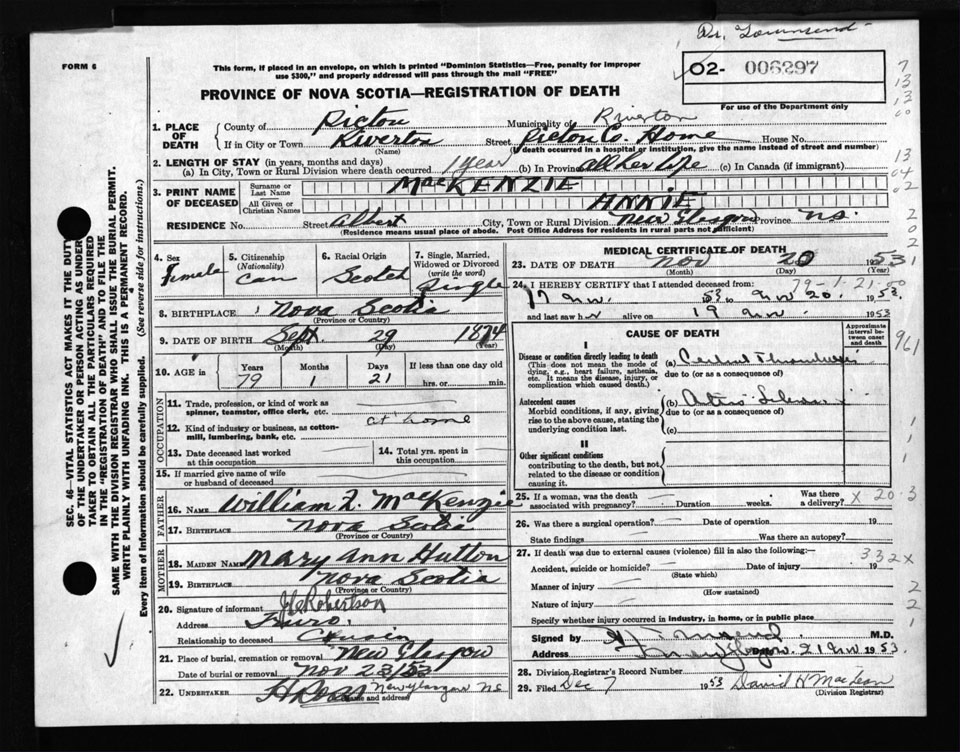 Dr. Townsend
FORM 6
This form, if placed in an envelope, on which is printed "Dominion Statistics—Free, penalty for improper
use $300," and properly addressed will pass through the mail "FREE"
02- 006297
For use of the Department only
PROVINCE OF NOVA SCOTIA—REGISTRATION OF DEATH
1. PLACE OF DEATH
County of Pictou Municipality of Riverton
If in City or Town Riverton Street Pictou Co. Home House No.
(Name) (If death occurred in a hospital or institution, give the name instead of street and number)
2. LENGTH OF STAY (in years, months and days)
(a) In City, Town or Rural Division where death occurred 1 year (b) In Province all her life (c) In Canada (if immigrant)
3. PRINT NAME OF DECEASED
Surname or Last Name MacKENZIE
All Given or Christian Names ANNIE
RESIDENCE No. Street Albert City, Town or Rural Division New Glasgow Province N.S.
(Residence means usual place of abode. Post Office Address for residents in rural parts not sufficient)
4. Sex Female
5. Citizenship (Nationality) Can
6. Racial Origin Scotch
7. Single, Married, Widowed or Divorced (write the word) Single
8. BIRTHPLACE Nova Scotia
(Province or Country)
9. DATE OF BIRTH Sept. 29 1874
(Month) (Day) (Year)
10. AGE in Years 79 Months 1 Days 21 If less than one day old
hrs. or min.
OCCUPATION
11. Trade, profession, or kind of work as
spinner, teamster, office clerk, etc.
12. Kind of industry or business, as cotton-
mill, lumbering, bank, etc. at home
13. Date deceased last worked
at this occupation
14. Total yrs. spent in
this occupation
15. If married give name of wife
or husband of deceased
FATHER
16. NAME William MacKenzie
17. BIRTHPLACE Nova Scotia
(Province or Country)
MOTHER
18. MAIDEN NAME Mary Ann Hutton
19. BIRTHPLACE Nova Scotia
(Province or Country)
20. Signature of informant Robertson
Address Truro.
Relationship to deceased Cousin
21. Place of burial, cremation or removal New Glasgow
Date of burial or removal Nov 23/53
22. UNDERTAKER New Glasgow N.S.
(Name and address)
MEDICAL CERTIFICATE OF DEATH
23. DATE OF DEATH Nov 20 1953
(Month) (Day) (Year)
79-1-21-50
24. I HEREBY CERTIFY that I attended deceased from:
17 Nov. 53 to Nov 20 1953
and last saw her alive on 19 Nov. 1953
CAUSE OF DEATH
Approximate interval between onset and death
I
Disease or condition directly leading to death
(This does not mean the mode of
dying, e.g., heart failure, asthenia,
etc. It means the disease, injury, or
complication which caused death.)
(a) Cerebral Thrombosis
due to (or as a consequence of)
Antecedent causes
Morbid conditions, if any, giving
rise to the above cause, stating the
underlying condition last.
(b)
due to (or as a consequence of)
(c)
II
Other significant conditions
contributing to the death, but not
related to the disease or condition
causing it.
25. If a woman, was the death
associated with pregnancy? Duration weeks. Was there a delivery?
26. Was there a surgical operation? Date of operation 19
State findings Was there an autopsy?
27. If death was due to external causes (violence) fill in also the following:—
332x
Accident, suicide or homicide? Date of injury 19
(State which)
Manner of injury
(How sustained)
Nature of injury
Specify whether injury occurred in industry, in home, or in public place
Signed by M.D.
Address New Glasgow 21 Nov. 1953
28. Division Registrar's Record Number
29. Filed Dec 7 1953 David H MacLean
(Division Registrar)
SEC. 46—VITAL STATISTICS ACT MAKES IT THE DUTY
OF THE UNDERTAKER OR PERSON ACTING AS UNDER-
TAKER TO OBTAIN ALL THE PARTICULARS REQUIRED
IN THE "REGISTRATION OF DEATH" AND TO FILE THE
SAME WITH THE DIVISION REGISTRAR WHO SHALL ISSUE THE BURIAL PERMIT.
WRITE PLAINLY WITH UNFADING INK. THIS IS A PERMANENT RECORD.
Every item of information should be carefully supplied. (See reverse side for instructions.)